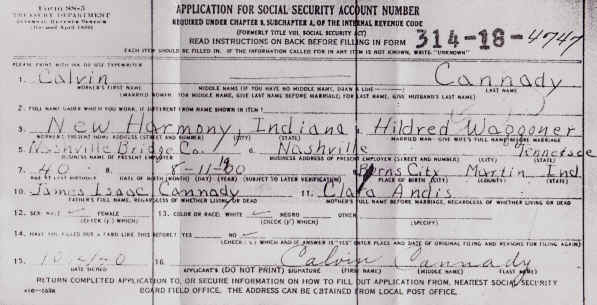 FORM SS-5
TREASURY DEPARTMENT
INTERNAL REVENUE SERVICE
APPLICATION FOR SOCIAL SECURITY ACCOUNT NUMBER
REQUIRED UNDER CHAPTER 9, SUBCHAPTER A, OF THE INTERNAL REVENUE CODE
(FORMERLY TITLE VIII, SOCIAL SECURITY ACT)
READ INSTRUCTIONS ON BACK BEFORE FILLING IN FORM
314-18-4747
EACH ITEM SHOULD BE FILLED IN. IF THE INFORMATION CALLED FOR IN ANY ITEM IS NOT KNOWN, WRITE "UNKNOWN"
PLEASE PRINT WITH INK OR USE TYPEWRITER
1. Calvin Cannady
WORKER'S FIRST NAME MIDDLE NAME (IF YOU HAVE NO MIDDLE NAME, DRAW A LINE) LAST NAME
(MARRIED WOMAN: FOR MIDDLE NAME, GIVE LAST NAME BEFORE MARRIAGE; FOR LAST NAME, GIVE HUSBAND'S LAST NAME)
2. FULL NAME UNDER WHICH YOU WORK, IF DIFFERENT FROM NAME SHOWN IN ITEM 1
3. New Harmony Indiana 4. Hildred Waggoner
WORKER'S PRESENT HOME ADDRESS (STREET AND NUMBER) (CITY) (STATE) MARRIED MAN: GIVE WIFE'S FULL NAME BEFORE MARRIAGE
5. Nashville Bridge Co. 6. Nashville Tennessee
BUSINESS NAME OF PRESENT EMPLOYER BUSINESS ADDRESS OF PRESENT EMPLOYER (STREET AND NUMBER) (CITY) (STATE)
7. 40 8. 9. Burns City Martin Ind.
AGE AT LAST BIRTHDAY DATE OF BIRTH: (MONTH) (DAY) (YEAR) (SUBJECT TO LATER VERIFICATION) PLACE OF BIRTH (CITY) (COUNTY) (STATE)
10. James Isaac Cannady 11. Clara Andis
FATHER'S FULL NAME, REGARDLESS OF WHETHER LIVING OR DEAD MOTHER'S FULL NAME BEFORE MARRIAGE, REGARDLESS OF WHETHER LIVING OR DEAD
12. SEX: MALE ✓ FEMALE 13. COLOR OR RACE: WHITE ✓ NEGRO OTHER
(CHECK (✓) WHICH) (CHECK (✓) WHICH) (SPECIFY)
14. HAVE YOU FILLED OUT A CARD LIKE THIS BEFORE? YES NO ✓
(CHECK (✓) WHICH AND IF ANSWER IS "YES" ENTER PLACE AND DATE OF ORIGINAL FILING AND REASONS FOR FILING AGAIN)
15. 16. Calvin Cannady
DATE SIGNED APPLICANT'S (DO NOT PRINT) SIGNATURE (FIRST NAME) (MIDDLE NAME) (LAST NAME)
RETURN COMPLETED APPLICATION TO, OR SECURE INFORMATION ON HOW TO FILL OUT APPLICATION FROM, NEAREST SOCIAL SECURITY
BOARD FIELD OFFICE. THE ADDRESS CAN BE OBTAINED FROM LOCAL POST OFFICE.